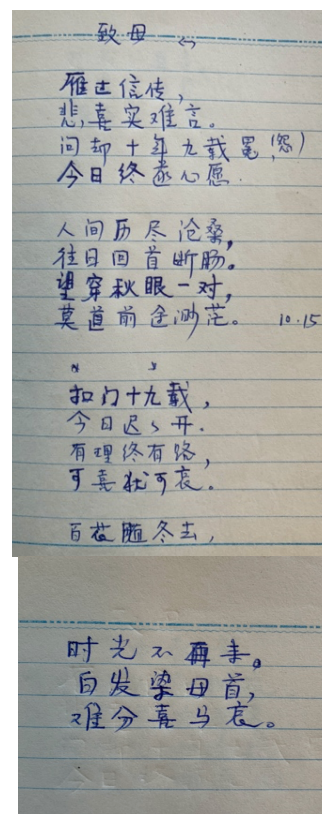 致母 (一)
雁过信传,
悲,喜实难言。
问却十年九载冤(怨)
今日终遂心愿.
人间历尽沧桑,
往日回首断肠。
望穿秋眼一对,
莫道前途渺茫。 10.15
扣门十九载,
今日迟迟开.
有理终有路,
可喜犹可哀。
百花随冬去,
时光不再来。
白发染母首,
难分喜与哀。